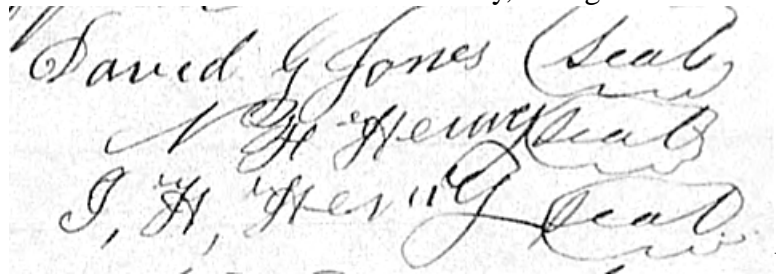 David G Jones (Seal)
N H Henry (Seal)
I, H, Henry (Seal)